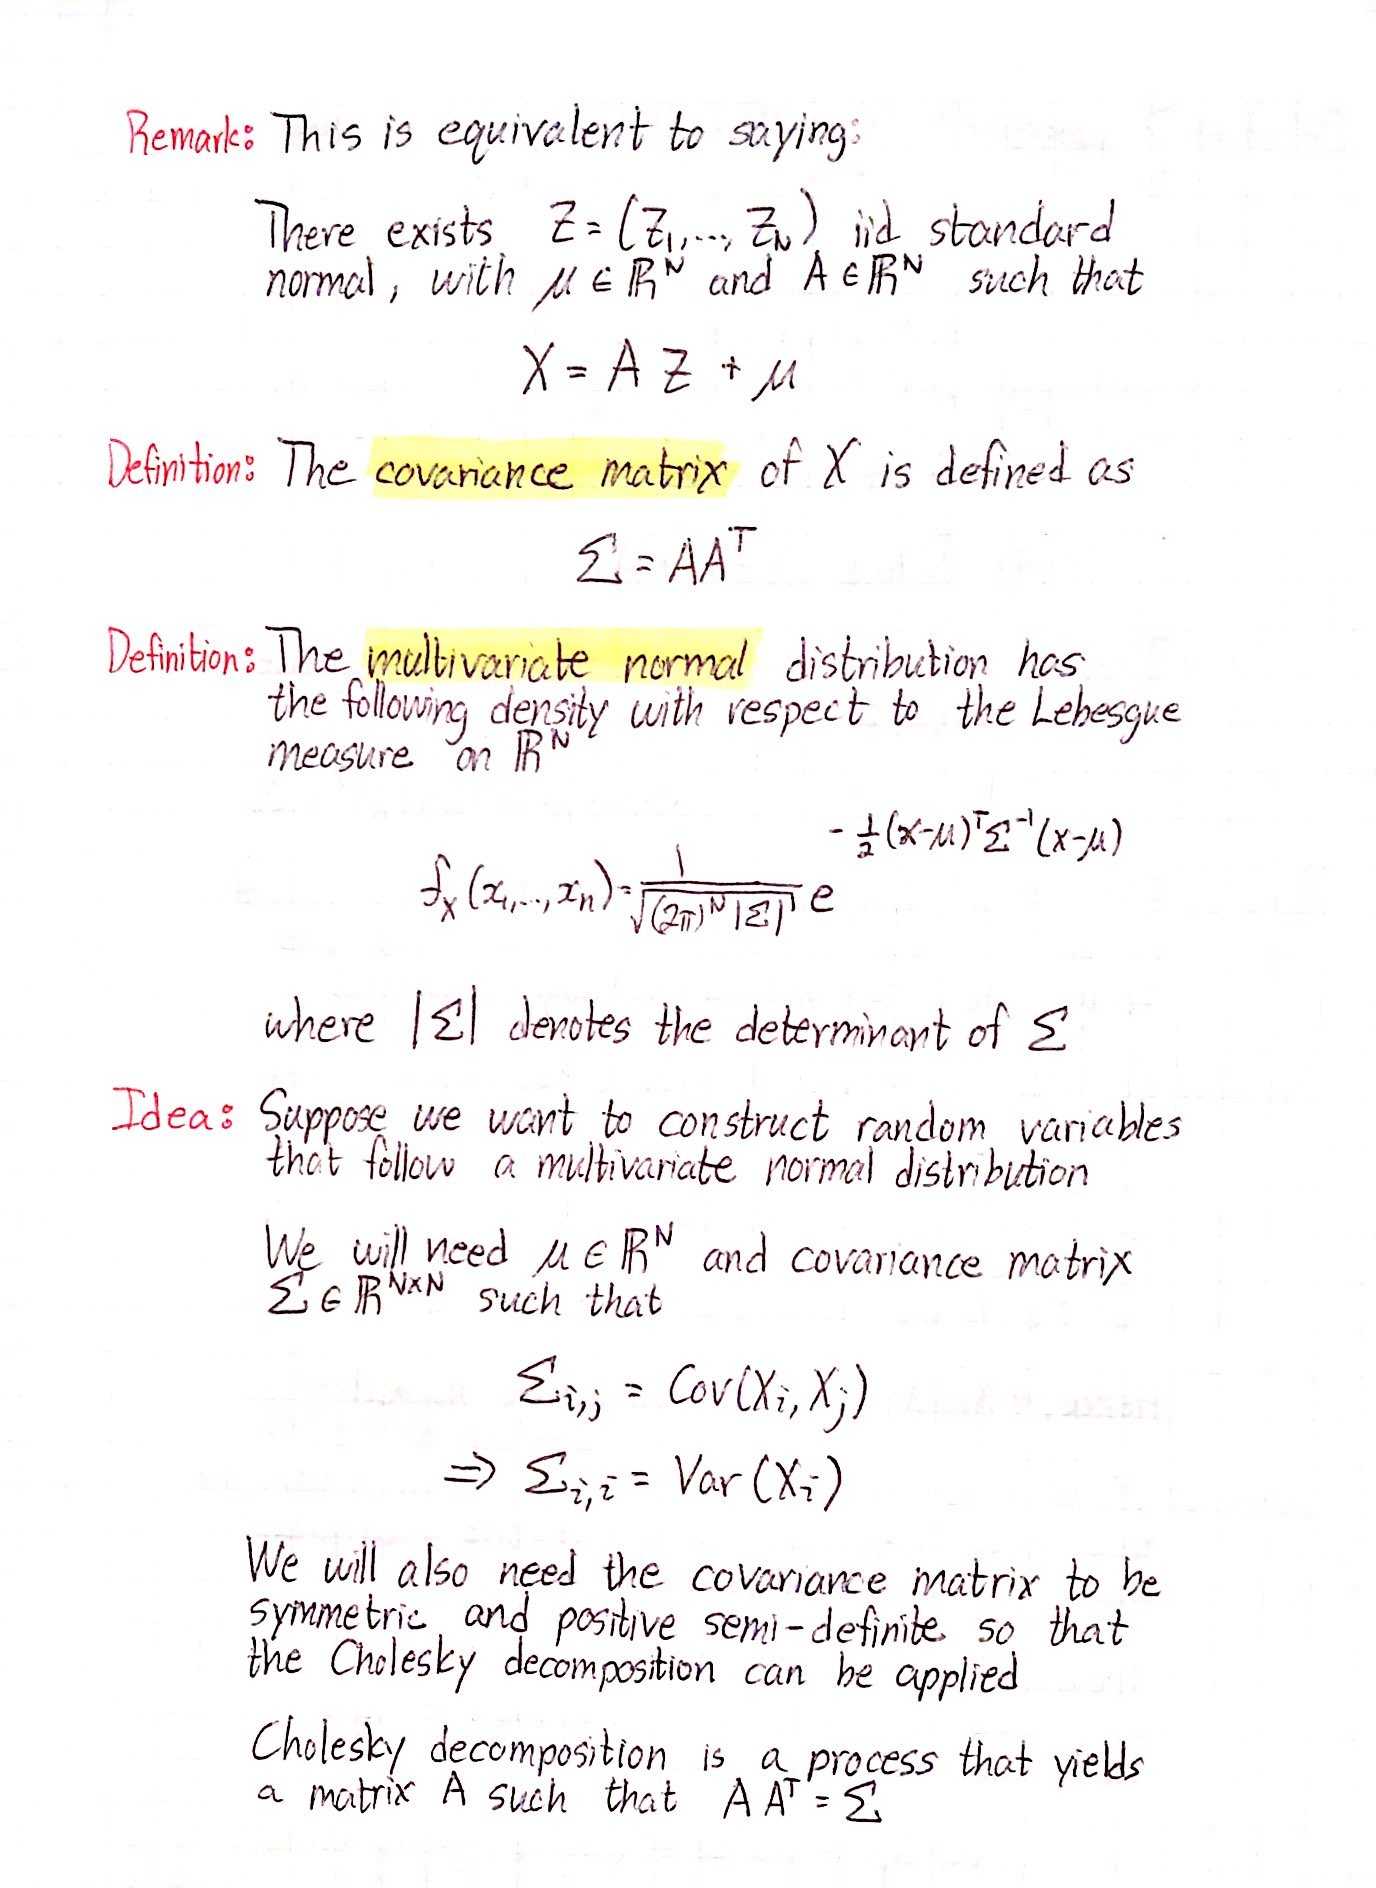 Remark: This is equivalent to saying:
There exists Z = (Z₁,..., Z_N) iid standard
normal, with μ ∈ ℝᴺ and A ∈ ℝᴺ such that
X = A Z + μ
Definition: The covariance matrix of X is defined as
Σ = AAᵀ
Definition: The multivariate normal distribution has
the following density with respect to the Lebesgue
measure on ℝᴺ
f_X (x₁,..., x_n) = 1/√((2π)ᴺ |Σ|) e^(-½(x-μ)ᵀΣ⁻¹(x-μ))
where |Σ| denotes the determinant of Σ
Idea: Suppose we want to construct random variables
that follow a multivariate normal distribution
We will need μ ∈ ℝᴺ and covariance matrix
Σ ∈ ℝᴺˣᴺ such that
Σ_i,j = Cov(X_i, X_j)
⇒ Σ_i,i = Var(X_i)
We will also need the covariance matrix to be
symmetric and positive semi-definite so that
the Cholesky decomposition can be applied
Cholesky decomposition is a process that yields
a matrix A such that A Aᵀ = Σ